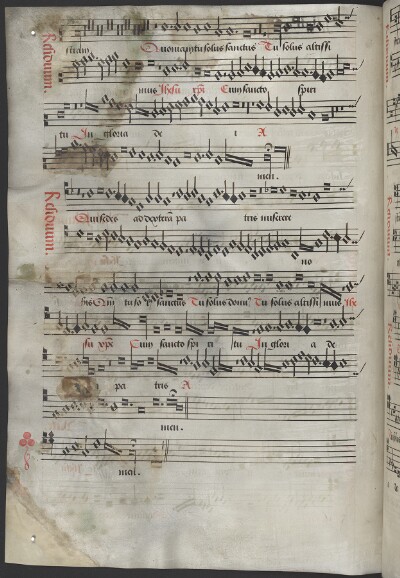 Residuum.
stram Quoniam tu solus sanctus Tu solus altissi
mus Ihesu xpi Cum sancto spiri
tu In gloria de i A
men.
Residuum.
Qui sedes ad dextram pa tris miserere
no
bis Qm tu so sanctus Tu solus domi Tu solus altissi mus Ihe
su xpi Cum sancto spi ri tu In glori a de
pa tris A
men.
men.